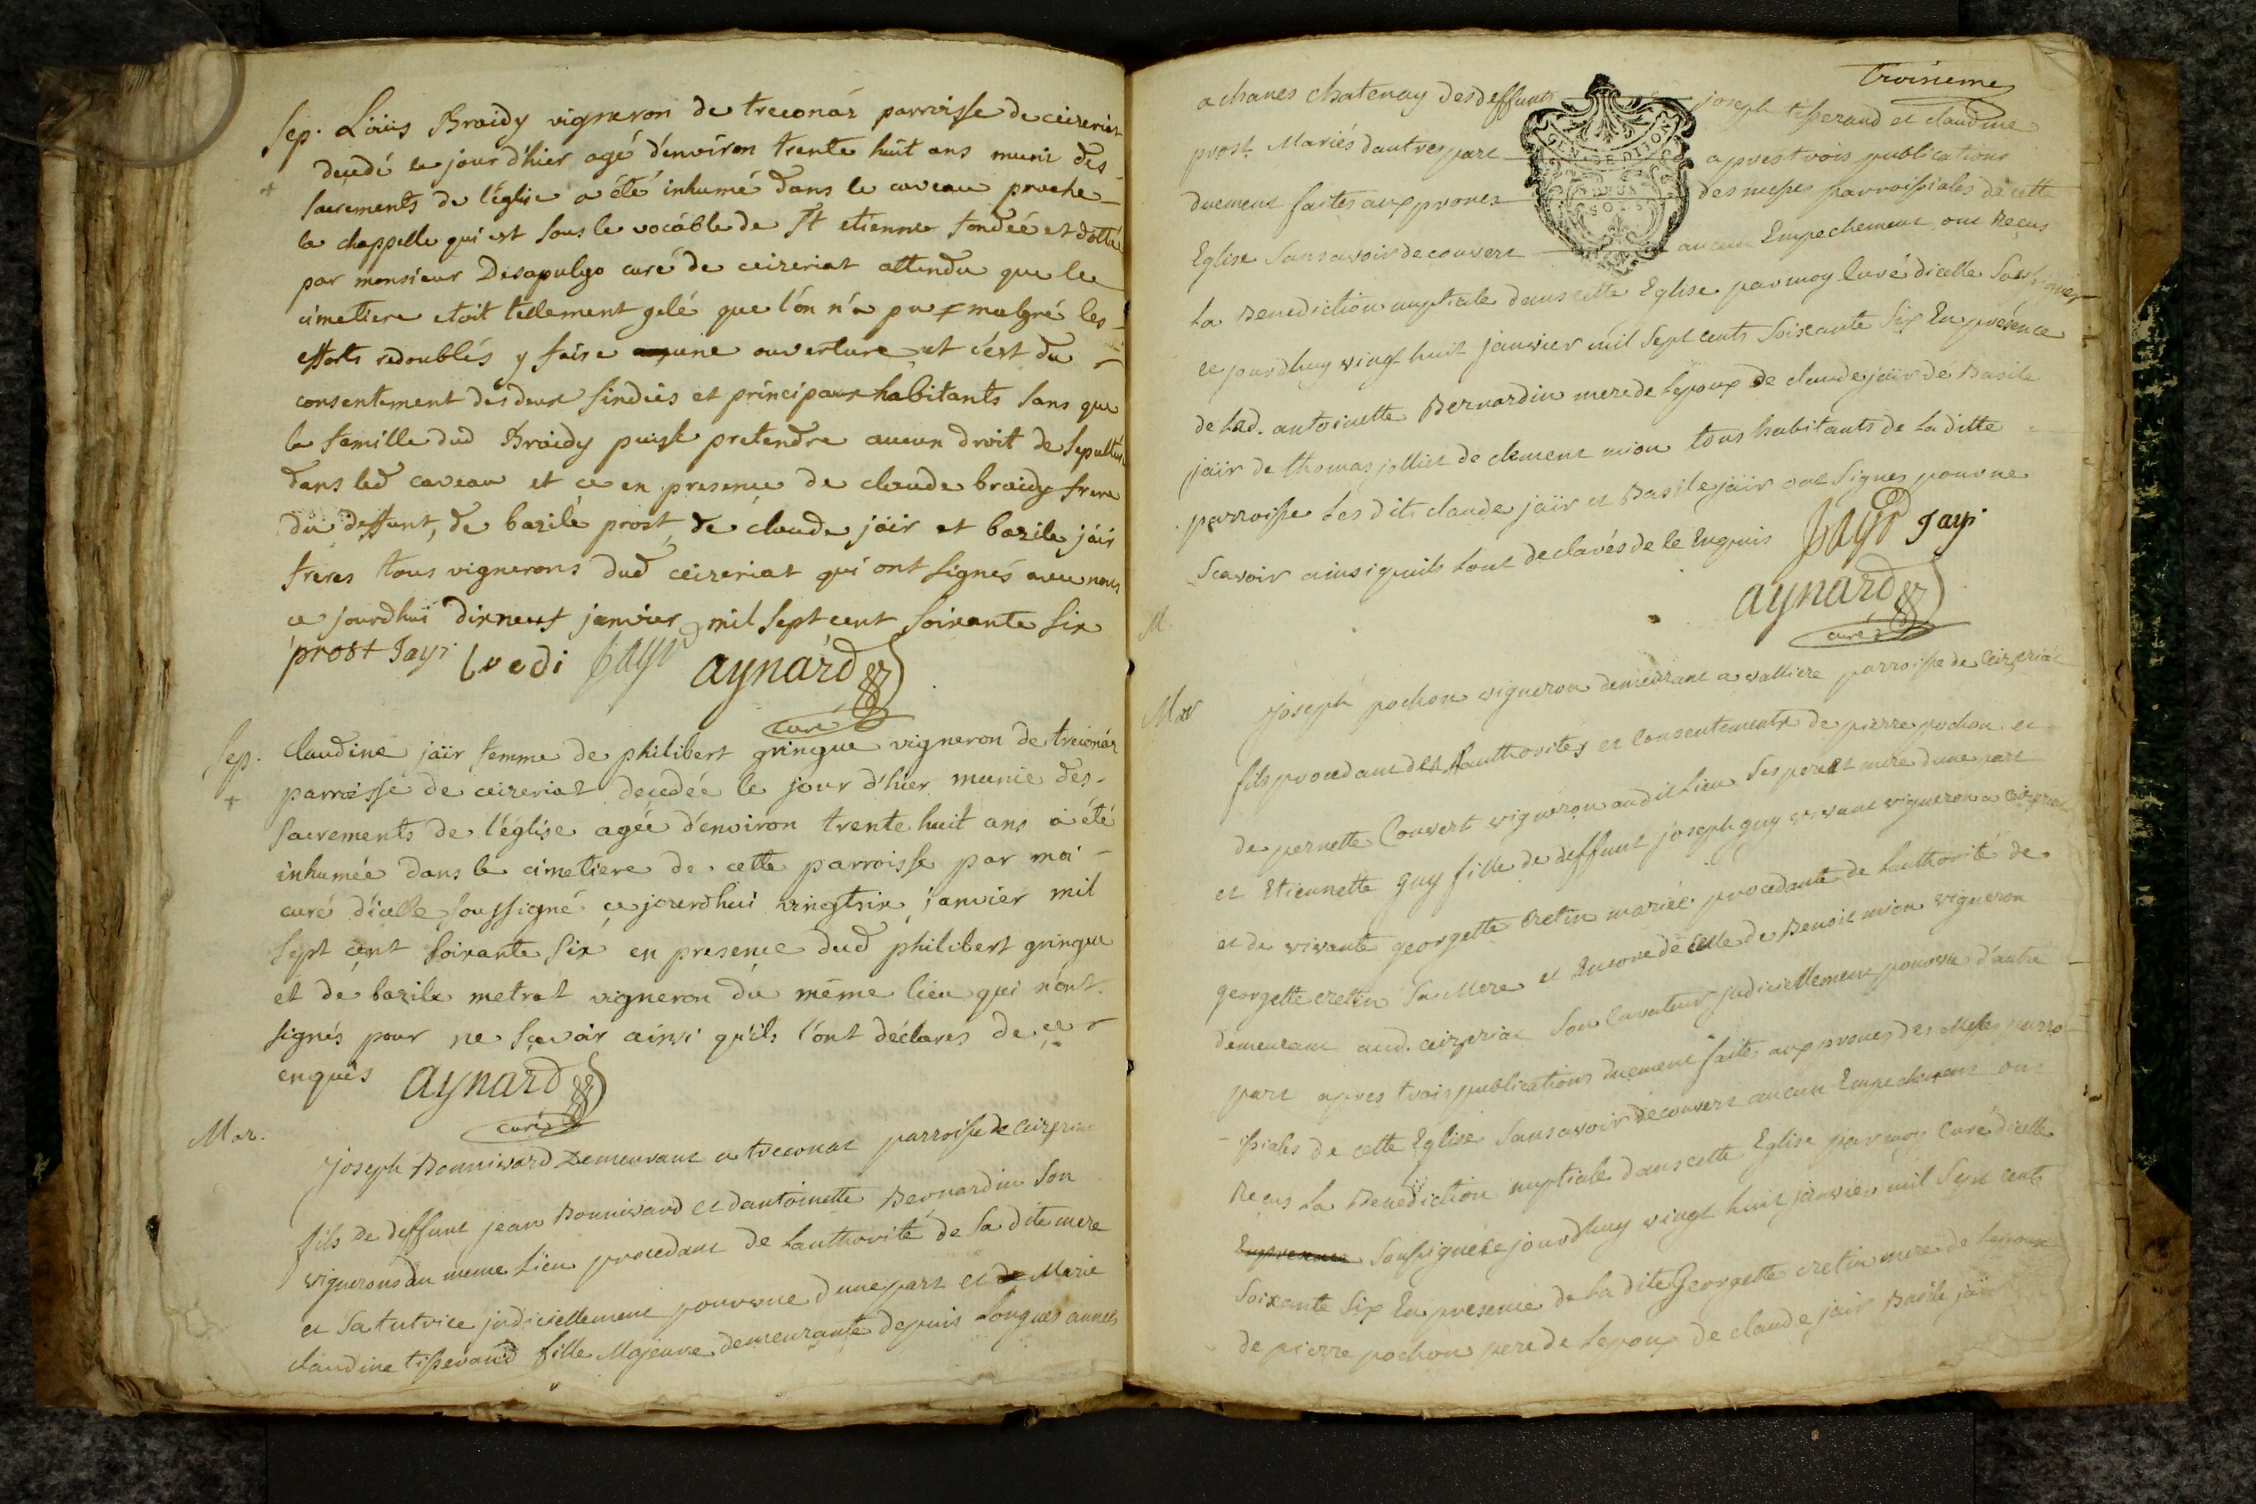 Sep. Loüis Braidy vigneron de treconás parroisse de ceizeriat
decedé le jour d'hier agé d'environ trente huit ans muni des
sacrements de l'église a été inhumé dans le caveau proche
la chappelle qui est sous le vocáble de St etienne fondée et dottée
par monsieur Desapulgo curé de ceizeriat attendu que le
cimetiere etoit tellement gelé que l'on n'a pu malgré les
efforts redoublés y faire une ouverture et c'est du
consentement des deux sindics et principaux habitants sans que
la famille dud Braidy puisse pretendre aucun droit de sepulture
dans led caveau et ce en presence de claude braidy frere
du deffunt, de bazile prost, de claude jáir et bazile jáir
freres tous vignerons dud ceizeriat qui ont signés avec nous
ce jourdhui dixneuf janvier mil sept cent soixante six
prost Jayr bredi Jayr aynard
curé
Sep. Claudine jaïr femme de philibert gringue vigneron de treconás
parroisse de ceizeriat decedée le jour d'hier munie des
sacrements de l'église agée d'environ trente huit ans a été
inhumée dans le cimetiere de cette parroisse par moi
curé d'icelle soussigné ce jourdhui vingtsix janvier mil
sept cent soixante six en presence dud philibert gringue
et de bazile metrat vigneron du même lieu qui n'ont
signés pour ne sçavoir ainsi qu'ils l'ont déclarés de ce
enquis aynard
curé
Mar. Joseph Bonnivard Demeurant a treconat parroisse de Ceizeriat
fils de deffunt jean Bonnivard et dantoinette Bernardin son
vignerons du meme Lieu procedant de Lauthorité de Sa dite mere
et Sa tutrice judiciellement pourvue d'une part et Marie
claudine tisserand fille Majeure demeurante depuis Longues années
troisieme
a chanes chatenay des deffunts joseph tisserand et claudine
prost Mariés dautre part apres trois publications
duement faites aux prones des messes parroissiales de cette
Eglise sans avoir decouvert aucun Empechement ont Recus
La Benediction nuptiale dans cette Eglise par moy Curé dicelle Soussigné
GEN. DE DIJON
DEUX
SOLS
ce jourdhuy vingt huit janvier mil Sept cents Soixante Six En presence
de Lad. antoinette Bernardin mere de Lepoux de claude jaïr de Basile
jaïr de thomas jolliet de clement mion tous habitants de La ditte
parroisse Les dits claude jaïr et Basile jaïr ont Signes pour ne
Scavoir ainsi quils Lont declarés de le Enquis Jayr Jayr
aynard
curé
M.
Mar Joseph pochon vigneron demeurant a valliere parroisse de Ceizeriat
fils procedant des Lauthorites et Consentements de pierre pochon et
de pernette Convert vigneron audit Lieu Ses pere et mere dune part
et Etiennette guy fille de deffunt joseph guy vivant vigneron a Ceizeriat
et de vivante georgette cretin mariée procedante de Lauthorité de
georgette cretin Sa Mere et Encore de celle de Benoit mion vigneron
demeurant aud. ceizeriat Son Curateur judiciellement pourvu d'autre
part apres trois publications duement faites aux prones des Messes parro-
issiales de cette Eglise Sans avoir decouvert aucun Empechement ont
Recus La Benediction nuptiale dans cette Eglise par moy Curé dicelle
Soussigné ce jourdhuy vingt huit janvier mil Sept cents
Soixante Six En presence de La dite Georgette cretin mere de
de pierre pochon pere de Lepoux de claude jaïr Basile jaïr